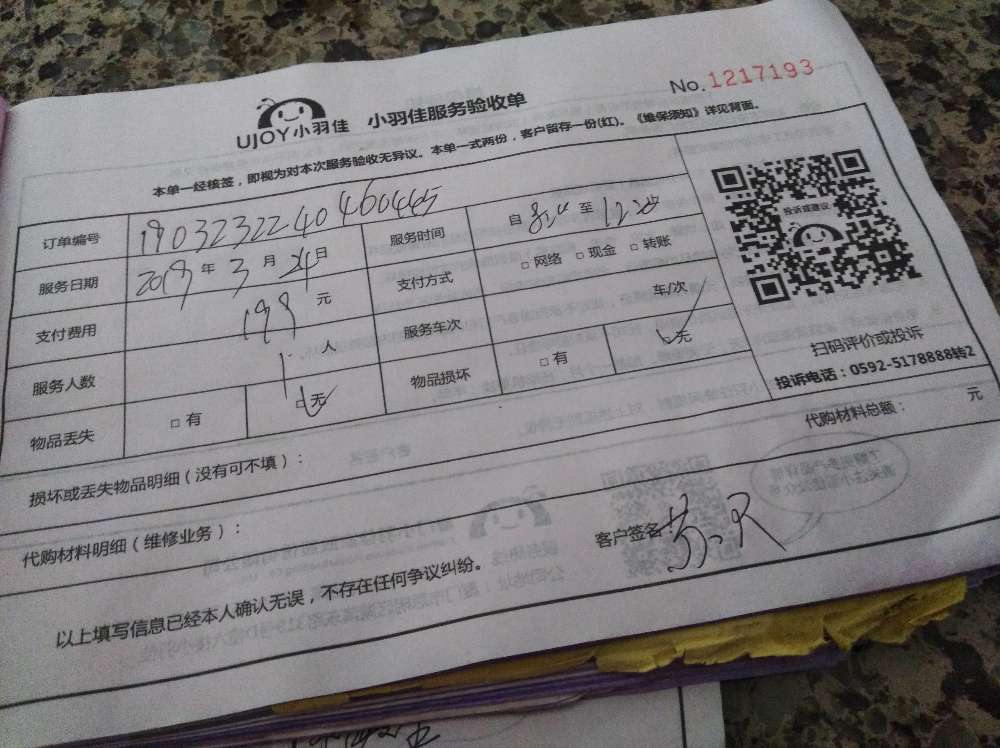 UJOY小羽佳 小羽佳服务验收单 No.1217193
本单一经核签，即视为对本次服务验收无异议。本单一式两份，客户留存一份(红)。《维保须知》详见背面。
订单编号 1903232240460445 服务时间 自 至
服务日期 2019年3月24日 支付方式 □网络 □现金 □转账
支付费用 199元 服务车次 车/次
服务人数 1人 物品损坏 □有 □无
物品丢失 □有 □无
投诉或建议
扫码评价或投诉
投诉电话：0592-5178888转2
损坏或丢失物品明细（没有可不填）：
代购材料总额： 元
代购材料明细（维修业务）：
客户签名
以上填写信息已经本人确认无误，不存在任何争议纠纷。